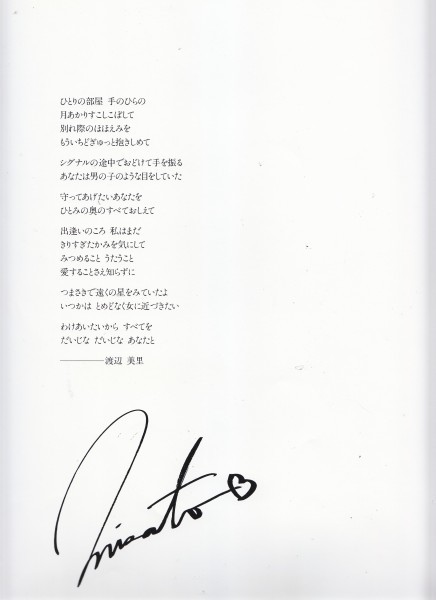 ひとりの部屋 手のひらの
月あかりすこしこぼして
別れ際のほほえみを
もういちどぎゅっと抱きしめて
シグナルの途中でおどけて手を振る
あなたは男の子のような目をしていた
守ってあげたいあなたを
ひとみの奥のすべておしえて
出逢いのころ 私はまだ
きりすぎたかみを気にして
みつめること うたうこと
愛することさえ知らずに
つまさきで遠くの星をみていたよ
いつかは とめどなく女に近づきたい
わけあいたいから すべてを
だいじな だいじな あなたと
————渡辺 美里
misato